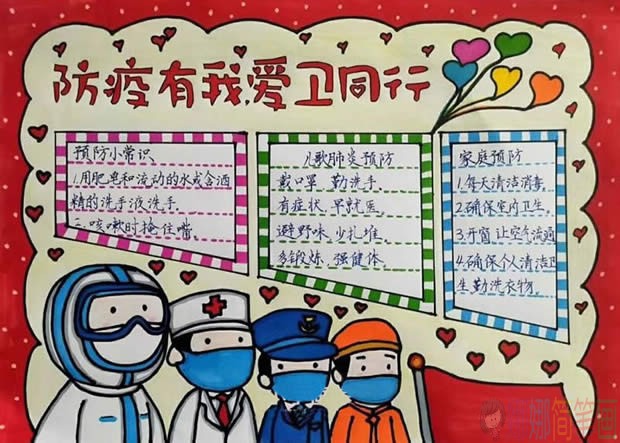 防疫有我,爱卫同行
预防小常识
1.用肥皂和流动的水或含酒
精的洗手液洗手.
二.咳嗽时掩住嘴.
儿歌肺炎预防
戴口罩,勤洗手.
有症状,早就医.
避野味,少扎堆.
多锻炼,强健体.
家庭预防
1.每天清洁消毒.
2.确保室内卫生.
3.开窗让空气流通
4.确保个人清洁卫
生勤洗衣物.
娜简笔画